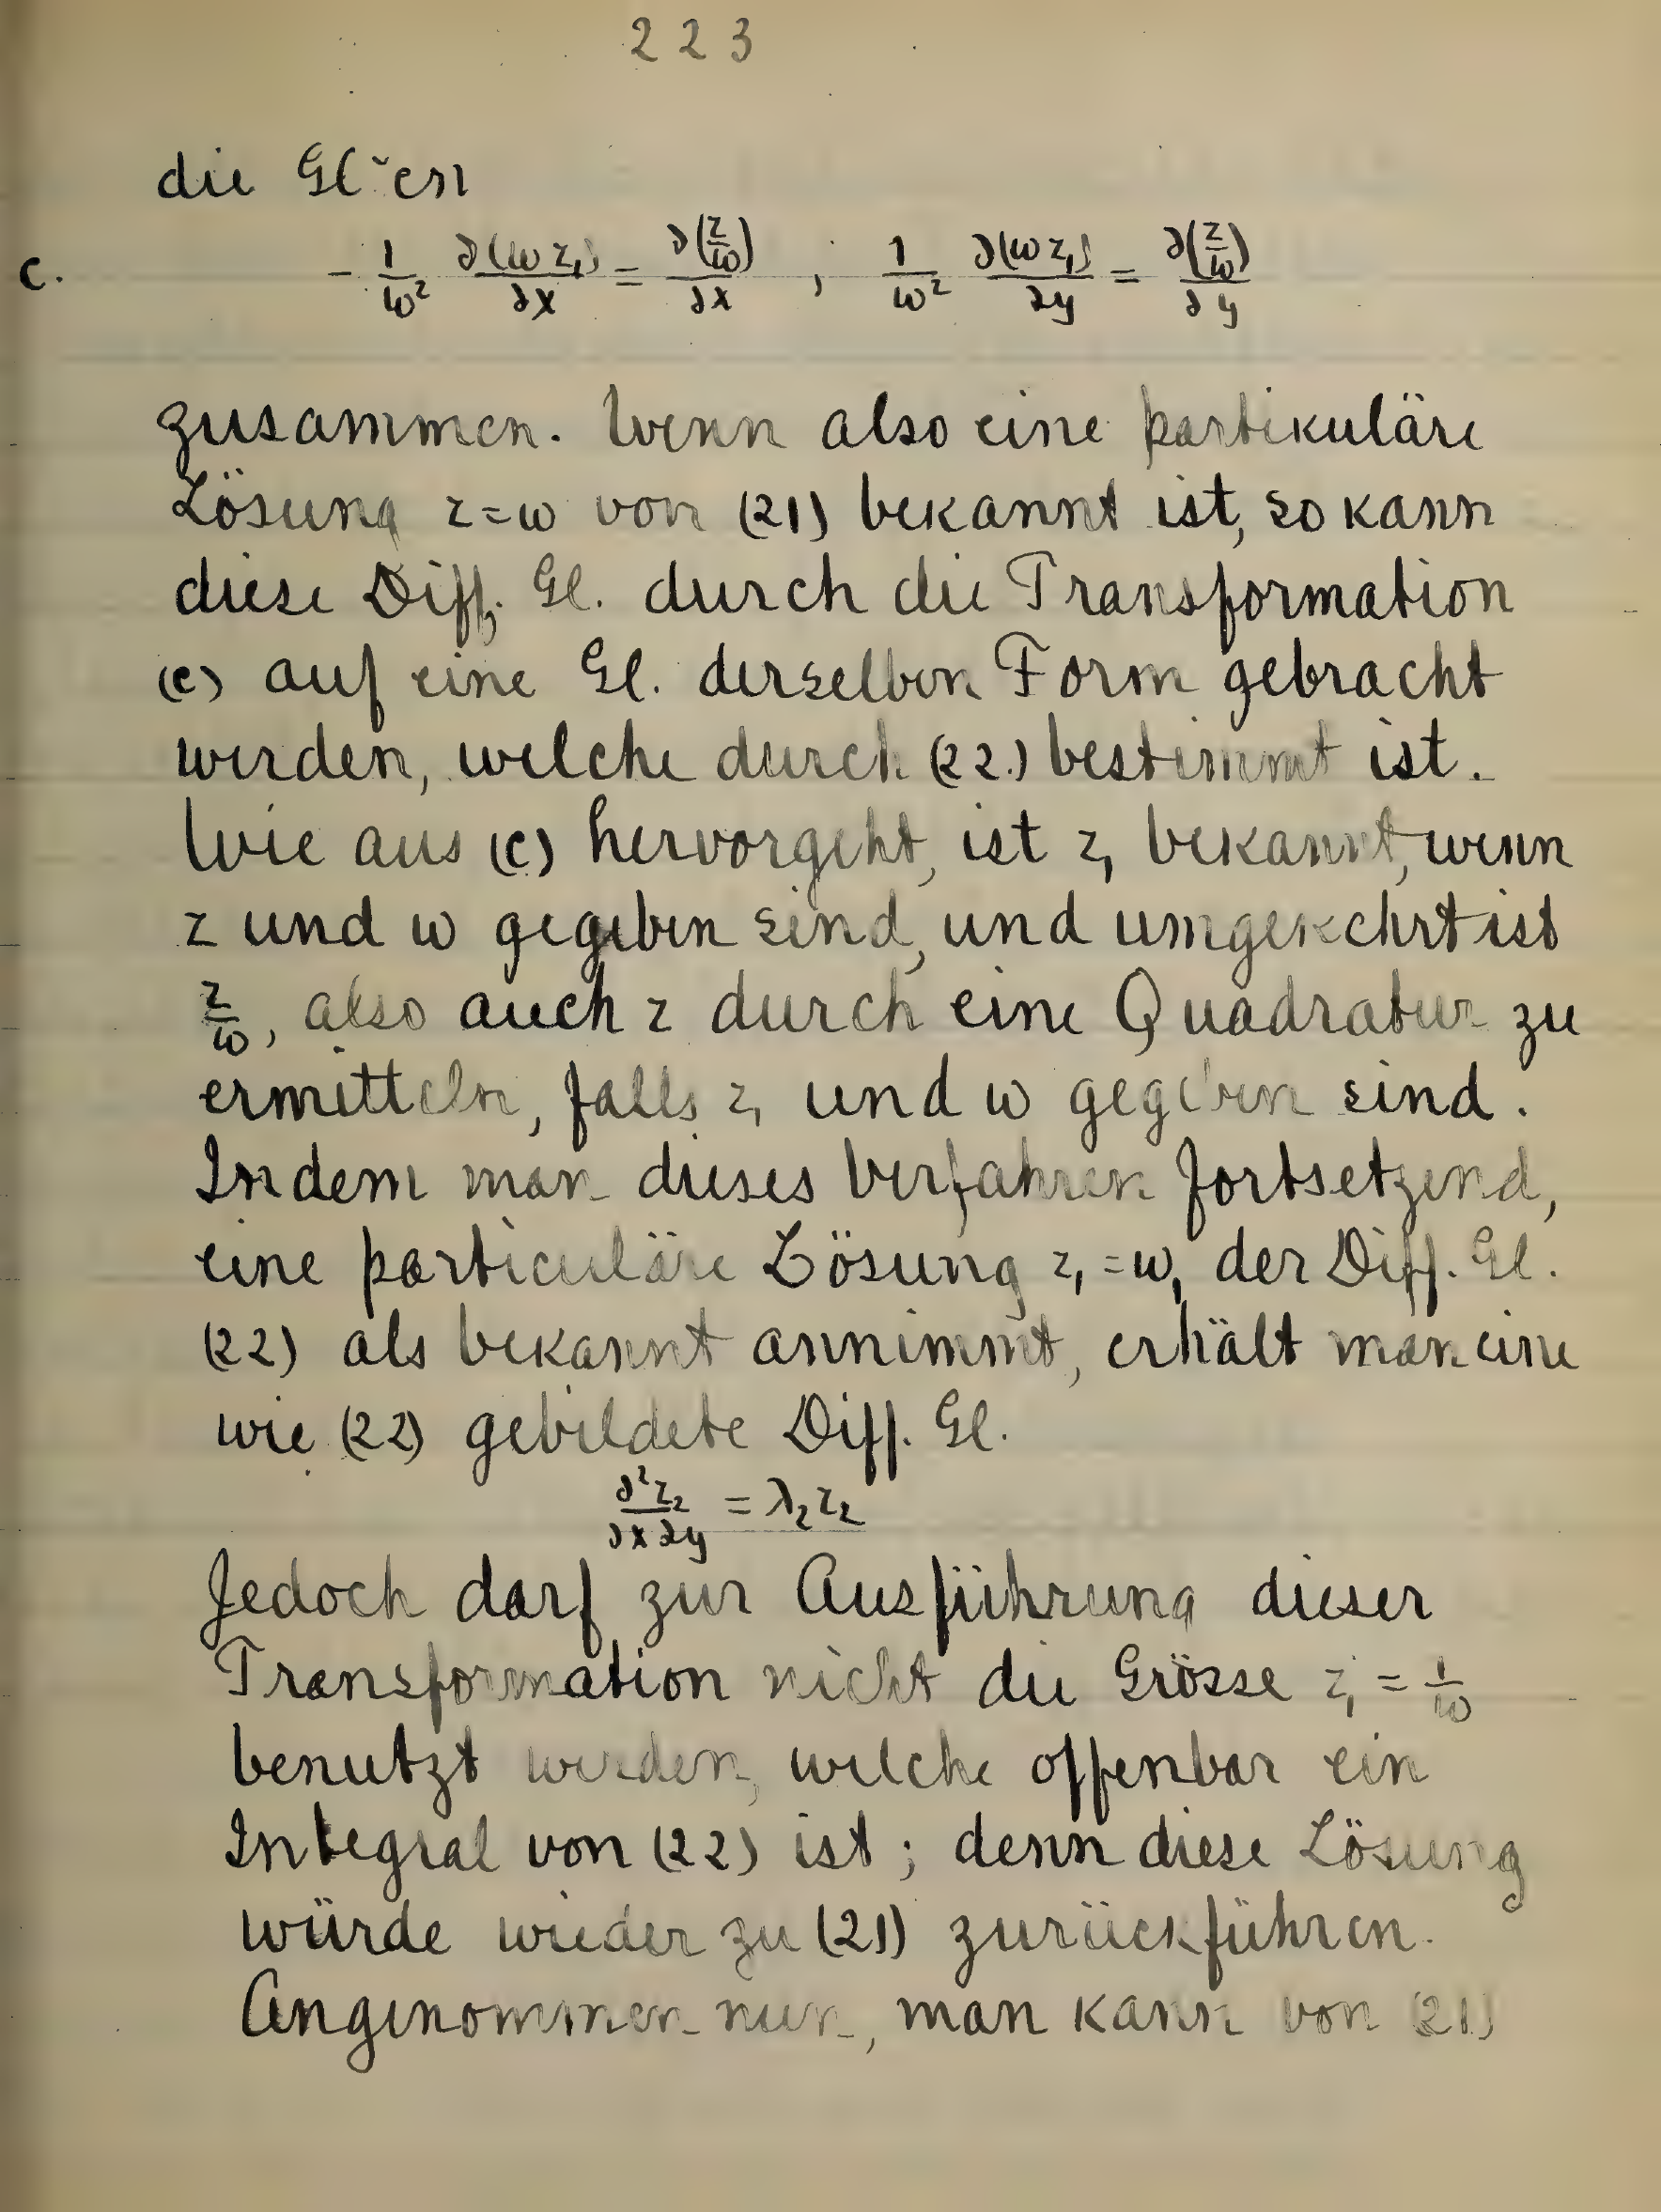 223
die Gl~en
c. - \frac{1}{w^2} \frac{∂(w z_1)}{∂x} = \frac{∂(\frac{z}{w})}{∂x} , \frac{1}{w^2} \frac{∂(w z_1)}{∂y} = \frac{∂(\frac{z}{w})}{∂y}
zusammen. Wenn also eine partikuläre
Lösung z=w von (21) bekannt ist, so kann
diese Diff. Gl. durch die Transformation
(c) auf eine Gl. derselben Form gebracht
werden, welche durch (22.) bestimmt ist.
Wie aus (c) hervorgeht, ist z_1 bekannt, wenn
z und w gegeben sind, und umgekehrt ist
\frac{z}{w}, also auch z durch eine Quadratur zu
ermitteln, falls z_1 und w gegeben sind.
Indem man dieses Verfahren fortsetzend,
eine particuläre Lösung z_1 = w_1 der Diff. Gl.
(22) als bekannt annimmt, erhält man eine
wie (22) gebildete Diff. Gl.
\frac{∂^2 z_2}{∂x ∂y} = λ_2 z_2
Jedoch darf zur Ausführung dieser
Transformation nicht die Grösse z_1 = \frac{1}{w}
benutzt werden, welche offenbar ein
Integral von (22) ist; denn diese Lösung
würde wieder zu (21) zurückführen.
Angenommen nun, man kann von (21)